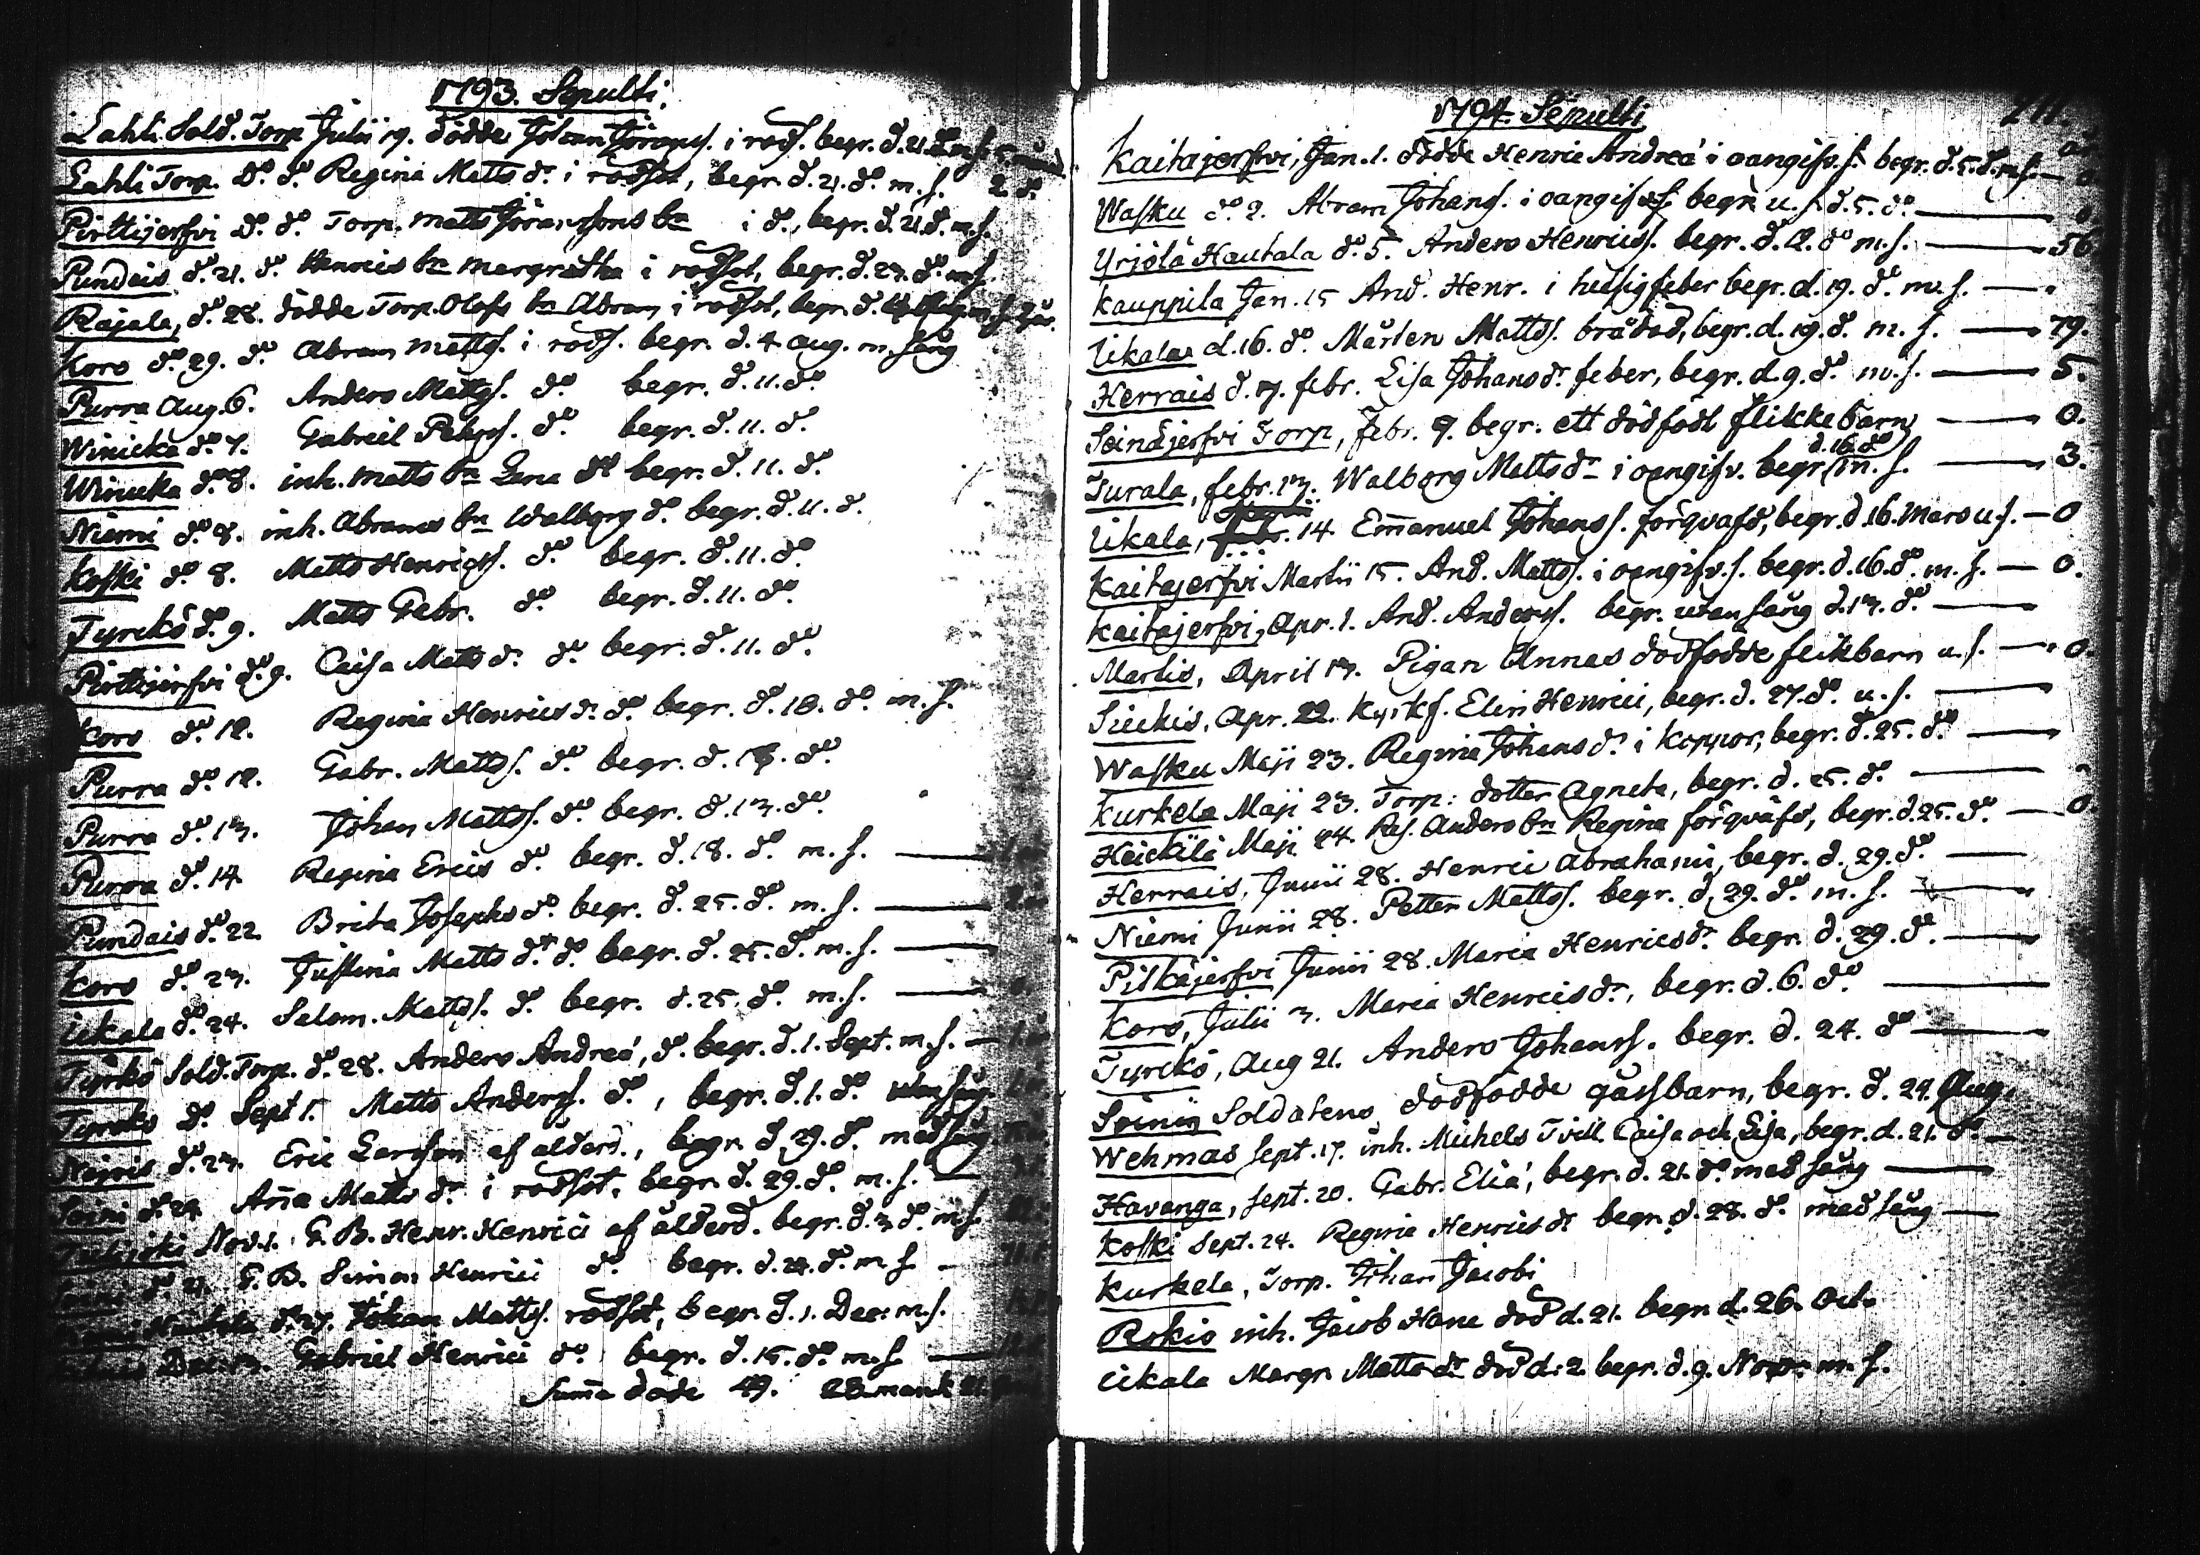 1793. Sepulti.
Lahti Sold. Torp Julii 19. dödde Johan Jöranss. i rods. begr. d. 21. dº m. s.
Lahti Torp. dº dº Regina Matts dr i rodsot, begr. d. 21. dº m. s. 2. dº
Pirttijerfvi dº dº Torp. Matts Jöranssons bn i dº, begr. d. 21. dº m. s.
Pundais dº 21. dº Henrics bn Margretha i rodsot, begr. d. 23. dº m. s.
Rajala, dº 28. dödde Torp. Olofs bn Abram i rodsot, begr. d.
Koro dº 29. dº Abram Mattss. i rods. begr. d. 4 Aug. m. sång
Purra Aug. 6. Anders Mattss. dº begr. d. 11. dº
Winicka dº 7. Gabriel Pehrss. dº begr. d. 11. dº
Winicka dº 8. inh. Matts bn Lena dº begr. d. 11. dº
Niemi dº 8. inh. Abrams bn Walborg dº begr. d. 11. d.
Koski dº 8. Matts Henricss. dº begr. d. 11. dº
Tyrckö d. 9. Matts Gabr. dº begr. d. 11. dº
Pirttijerfvi dº 9. Caisa Matts dr dº begr. d. 11. dº
Koro dº 12. Regina Henrics dr dº begr. d. 18. dº m. s.
Purra dº 12. Gabr. Mattss. dº begr. d. 18. dº
Purra dº 13. Johan Mattss. dº begr. d. 13. dº
Purra dº 14. Regina Erics dº begr. d. 18. dº m. s.
Pundais dº 22. Brita Josephs dº begr. d. 25. dº m. s.
Koro dº 23. Justina Matts dr dº begr. d. 25. dº m. s.
Ukala dº 24. Salom. Mattss. dº begr. d. 25. dº m. s.
Tyrkö Sold. Torp. dº 28. Anders Andreæ, dº begr. d. 1. Sept. m. s.
Tyrckö dº Sept 1. Matts Anderss. dº, begr. d. 1. dº utan sång
dº 23. Eric Larsson af ålderd., begr. d. 29. dº med sång
dº 24 Anna Matts dr i rodsot, begr. d. 29. dº m. s.
Nov. 1. G. B. Henr. Henrici af ålderd. begr. d. 3 dº m. s.
dº 21. G. B. Simon Henrici dº begr. d. 24. dº m. s.
Hautala d. 27. Johan Mattss. rodsot, begr. d. 1. Dec. m. s.
Dec. 13. Gabriel Henrici dº begr. d. 15. dº m. s.
Summa döde 49. 28 mank 21
1794. Sepulti
Kaitajerfvi, Jan. 1. dödde Henric Andreæ i oangifv. s. begr. d. 5. dº m. s. 0
Wasku dº 2. Abram Johanss. i oangifv. s. begr. u. s. d. 5. dº 0
Yrjölä Hautala dº 5. Anders Henricss. begr. d. 12. dº m. s. 56
Kauppila Jan. 15 And. Henr. i hetsigfeber begr. d. 19. dº m. s.
Ukala d. 16. dº Mårten Mattss. brådöd, begr. d. 19. dº m. s. 79.
Herrais d. 7. febr. Lisa Johans dr feber, begr. d. 9. dº m. s. 5.
Seindjerfvi Torp, febr. 9. begr. ett dödfödt flickebarn 0.
Turala, febr. 13. Walborg Matts dr i oangifv. begr. d. 16. dº m. s. 3.
Ukala, 14. Emanuel Johanss. förqvafd, begr. d. 16. Mars u. s. 0
Kaitajerfvi Martii 15. And. Mattss. i oangifv. s. begr. d. 16. dº m. s. 0.
Kaitajerfvi, Apr. 1. And. Anderss. begr. utan sång d. 13. dº
Martis, April 13. Pigan Annas dödfödde flikbarn u. s. 0.
Sieckis, Apr. 22. Kyrkf. Elin Henrici, begr. d. 27. dº u. s.
Wasku Maji 23. Regina Johans dr i koppor, begr. d. 25. dº
Kurkela Maji 23. Torp: dotter Agneta, begr. d. 25. dº
Heickilä Maji 24. Res. Anders bn Regina förqväfd, begr. d. 25. dº 0
Herrais, Junii 28. Henric Abrahami, begr. d. 29. dº
Niemi Junii 28. Petter Mattss. begr. d. 29. dº m. s.
Pitkäjerfvi Junii 28. Maria Henrics dr begr. d. 29. dº
Koro, Julii 3. Maria Henrics dr, begr. d. 6. dº
Tyrckö, Aug 21. Anders Johanss. begr. d. 24. dº
Soinin Soldatens dödfödde gåssbarn, begr. d. 24. Aug.
Wehmas Sept. 17. inh. Michels Tvill. Caisa och Lisa, begr. d. 21. dº
Havanga, Sept. 20. Gabr. Eliæ, begr. d. 21. dº med sång
Koski Sept. 24. Regina Henrics dr begr. d. 28. dº med sång
Kurkela, Torp. Johan Jacobi
Rokio inh. Jacob Hane död d. 21. begr. d. 26. Oct.
Ukala Margr. Matts dr död d. 2 begr. d. 9. Novr. m. s.